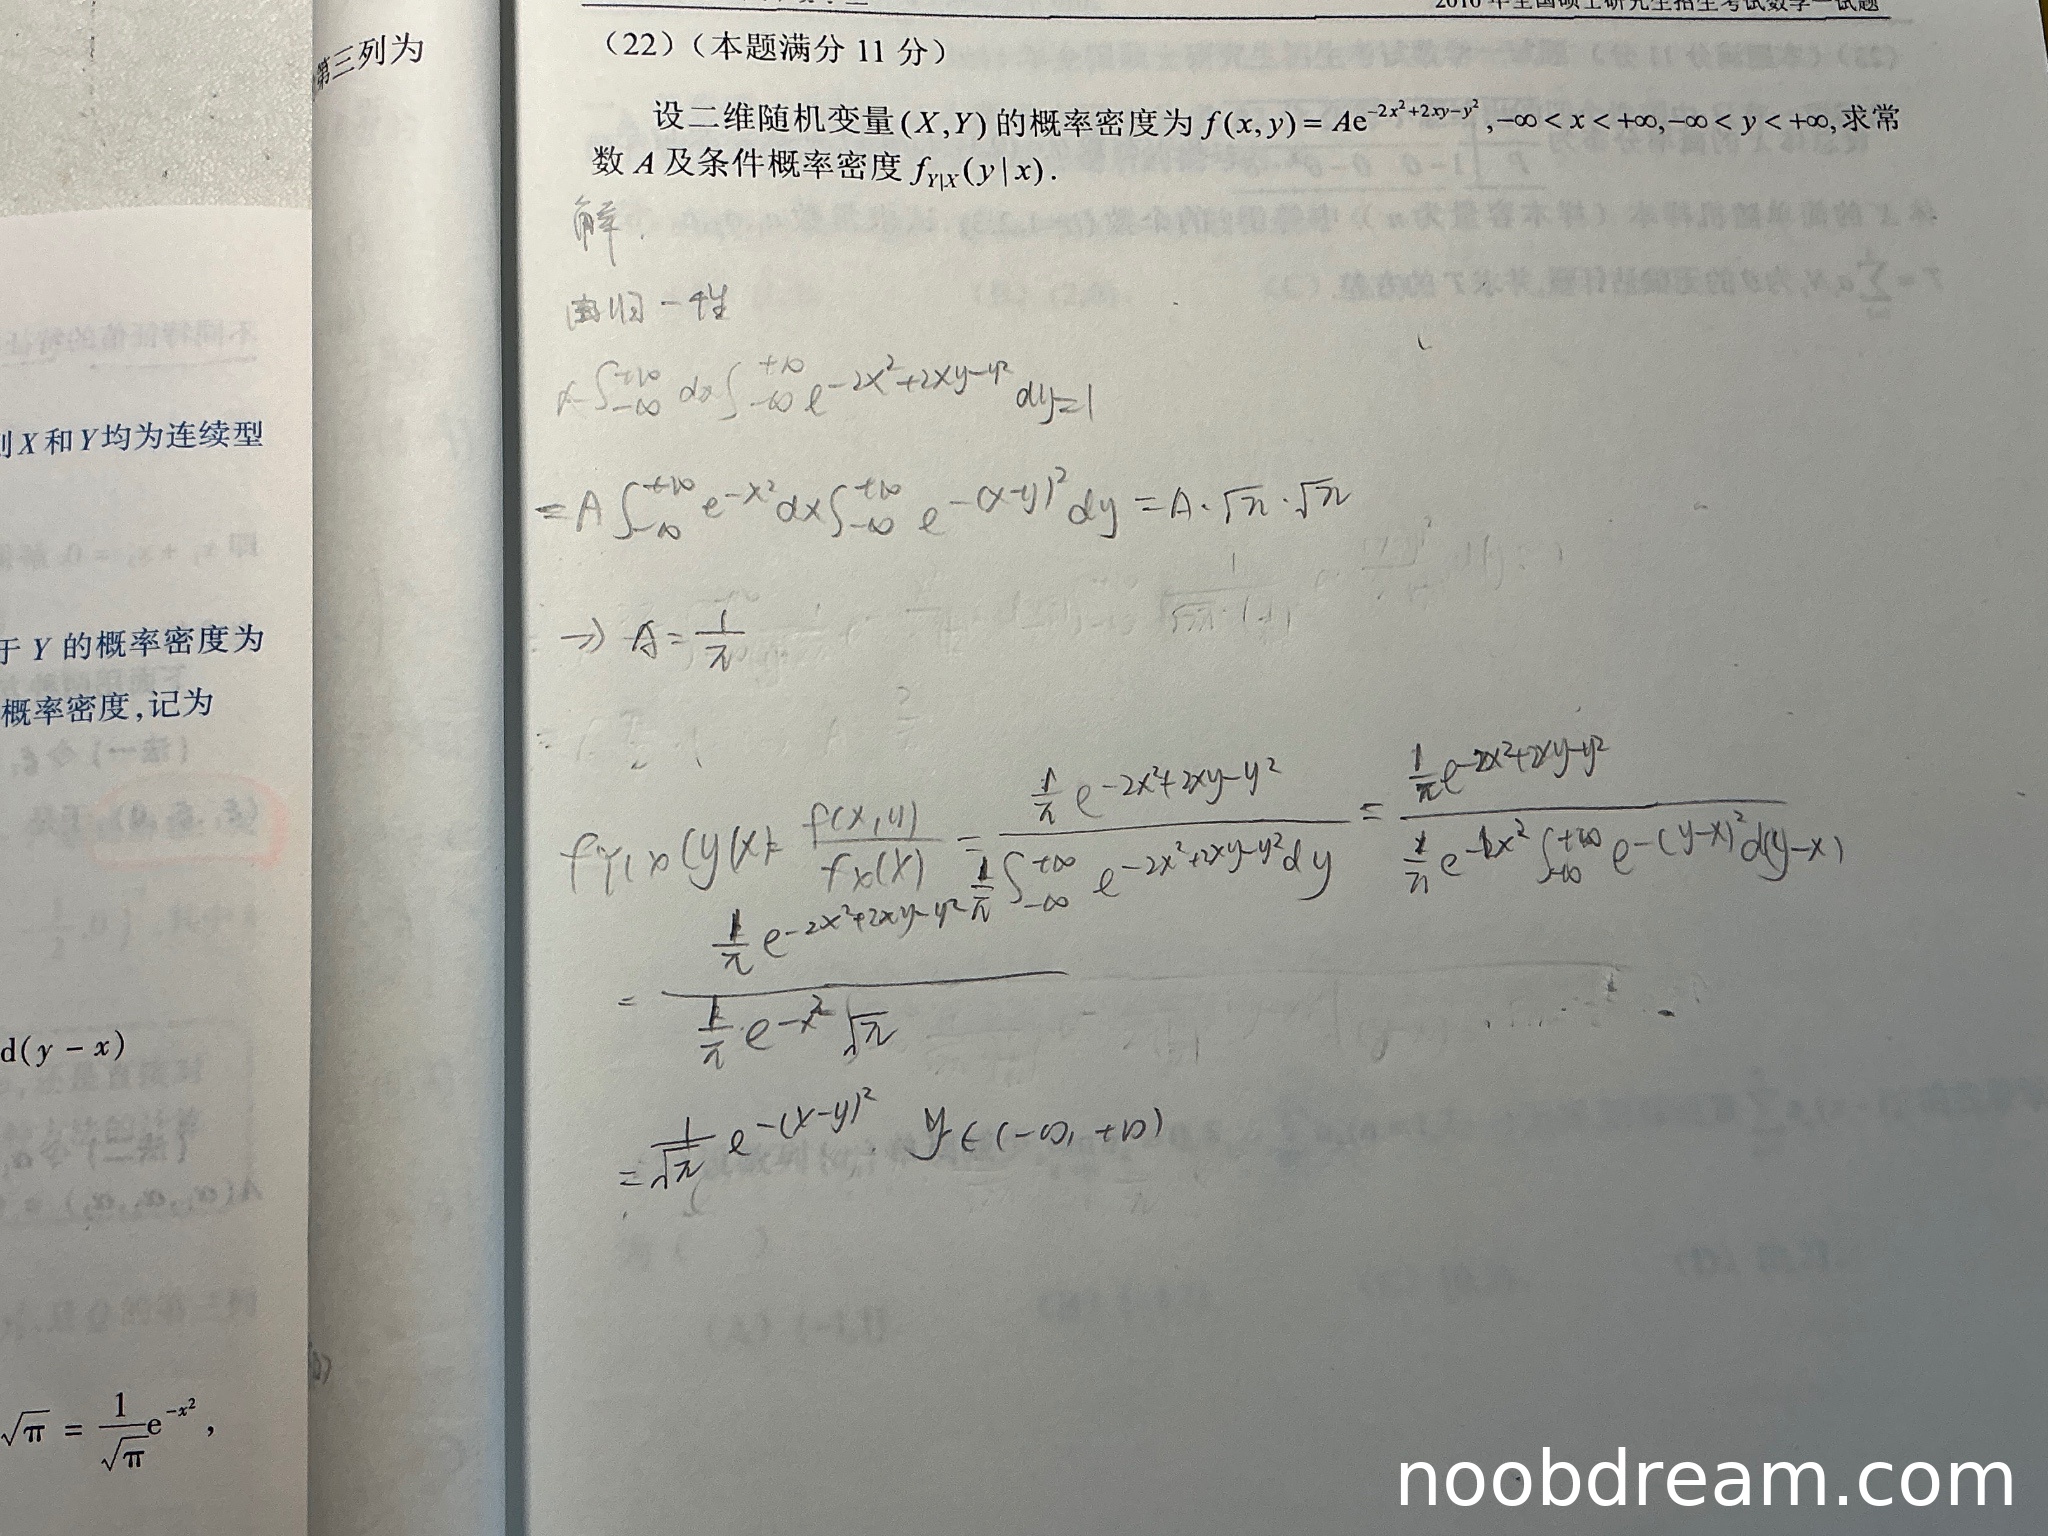 第三列为
则X和Y均为连续型
于 Y 的概率密度为
概率密度,记为
d(y − x)
√π = 1/√π e^{-x²} ,
2010 年全国硕士研究生招生考试数学一试题
（22）（本题满分 11 分）
设二维随机变量(X,Y)的概率密度为 f(x,y) = Ae^{-2x²+2xy-y²}, -∞ < x < +∞, -∞ < y < +∞, 求常
数 A 及条件概率密度 f_{Y|X}(y|x).
解.
由归一性
A∫_{-∞}^{+∞} dx∫_{-∞}^{+∞} e^{-2x²+2xy-y²} dy=1
= A∫_{-∞}^{+∞} e^{-x²} dx∫_{-∞}^{+∞} e^{-(x-y)²} dy = A·√π·√π
⇒ A = 1/π
f_{Y|X}(y|x) = f(x,y)/f_X(x) = (1/π e^{-2x²+2xy-y²})/(1/π ∫_{-∞}^{+∞} e^{-2x²+2xy-y²} dy) = (1/π e^{-2x²+2xy-y²})/(1/π e^{-x²} ∫_{-∞}^{+∞} e^{-(y-x)²} d(y-x))
= (1/π e^{-2x²+2xy-y²})/(1/π e^{-x²} √π)
= 1/√π e^{-(x-y)²}. y∈(-∞, +∞)
noobdream.com